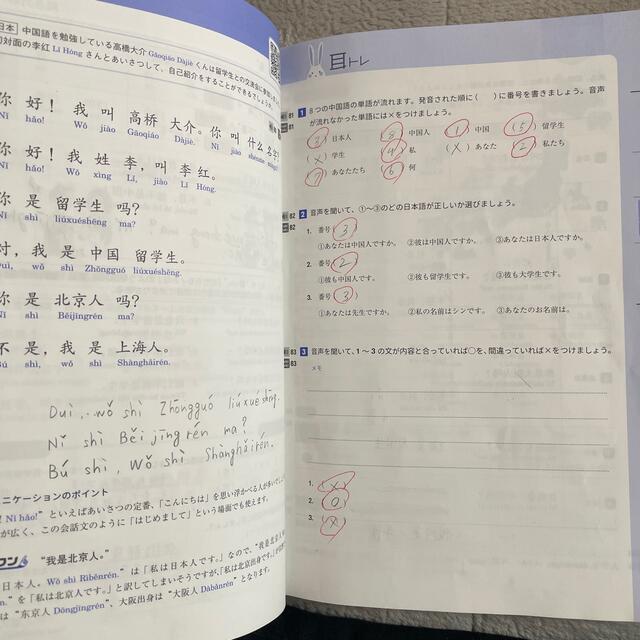 日本 中国語を勉強している高橋大介 Gāoqiáo Dàjiè くんは留学生との交流会に
初対面の李红 Lǐ Hóng さんとあいさつして、自己紹介をすることができるでしょうか
你 好！我 叫 高桥 大介。你 叫 什么 名字？
Nǐ hǎo! Wǒ jiào Gāoqiáo Dàjiè. Nǐ jiào shénme
你 好！我 姓 李，叫 李 红。
Nǐ hǎo! Wǒ xìng Lǐ, jiào Lǐ Hóng.
你 是 留学生 吗？
Nǐ shì liúxuéshēng ma?
对，我 是 中国 留学生。
Duì, wǒ shì Zhōngguó liúxuéshēng.
你 是 北京人 吗？
Nǐ shì Běijīngrén ma?
不 是，我 是 上海人。
Bú shì, wǒ shì Shànghǎirén.
Duì, wǒ shì Zhōngguó liúxuéshēng.
Nǐ shì Běijīngrén ma?
Bú shì, Wǒ shì Shànghǎirén.
ニケーションのポイント
Nǐ hǎo!” といえばあいさつの定番、「こんにちは」を思い浮かべる人が多いでしょ
が広く、この会話文のように「はじめまして」という場面でも使えます。
ワン “我是北京人。”
日本人。Wǒ shì Rìběnrén.” は「私は日本人です。」なので、“我是北京人
を「私は北京人です。」と訳してしまいそうですが、「私は北京出身です。」が
は “东京人 Dōngjīngrén”、大阪出身は “大阪人 Dàbǎnrén” となります。
耳トレ
1 8つの中国語の単語が流れます。発音された順に（ ）に番号を書きましょう。音声
が流れなかった単語には×をつけましょう。
(3) 日本人 (8) 中国人 (1) 中国 (5) 留学生
(×) 学生 (4) 私 (×) あなた (2) 私たち
(7) あなたたち (6) 何
2 音声を聞いて、①〜③のどの日本語が正しいか選びましょう。
1. 番号 (3)
①あなたは中国人ですか。 ②彼は中国人ですか。 ③あなたは日本人ですか。
2. 番号 (2)
①彼も中国人です。 ②彼も留学生です。 ③彼も大学生です。
3. 番号 (3)
①あなたは先生ですか。 ②私の名前はシンです。 ③あなたのお名前は。
3 音声を聞いて、1〜3の文が内容と合っていれば○を、間違っていれば×をつけましょう。
メモ
1. (×)
2. (○)
3. (×)